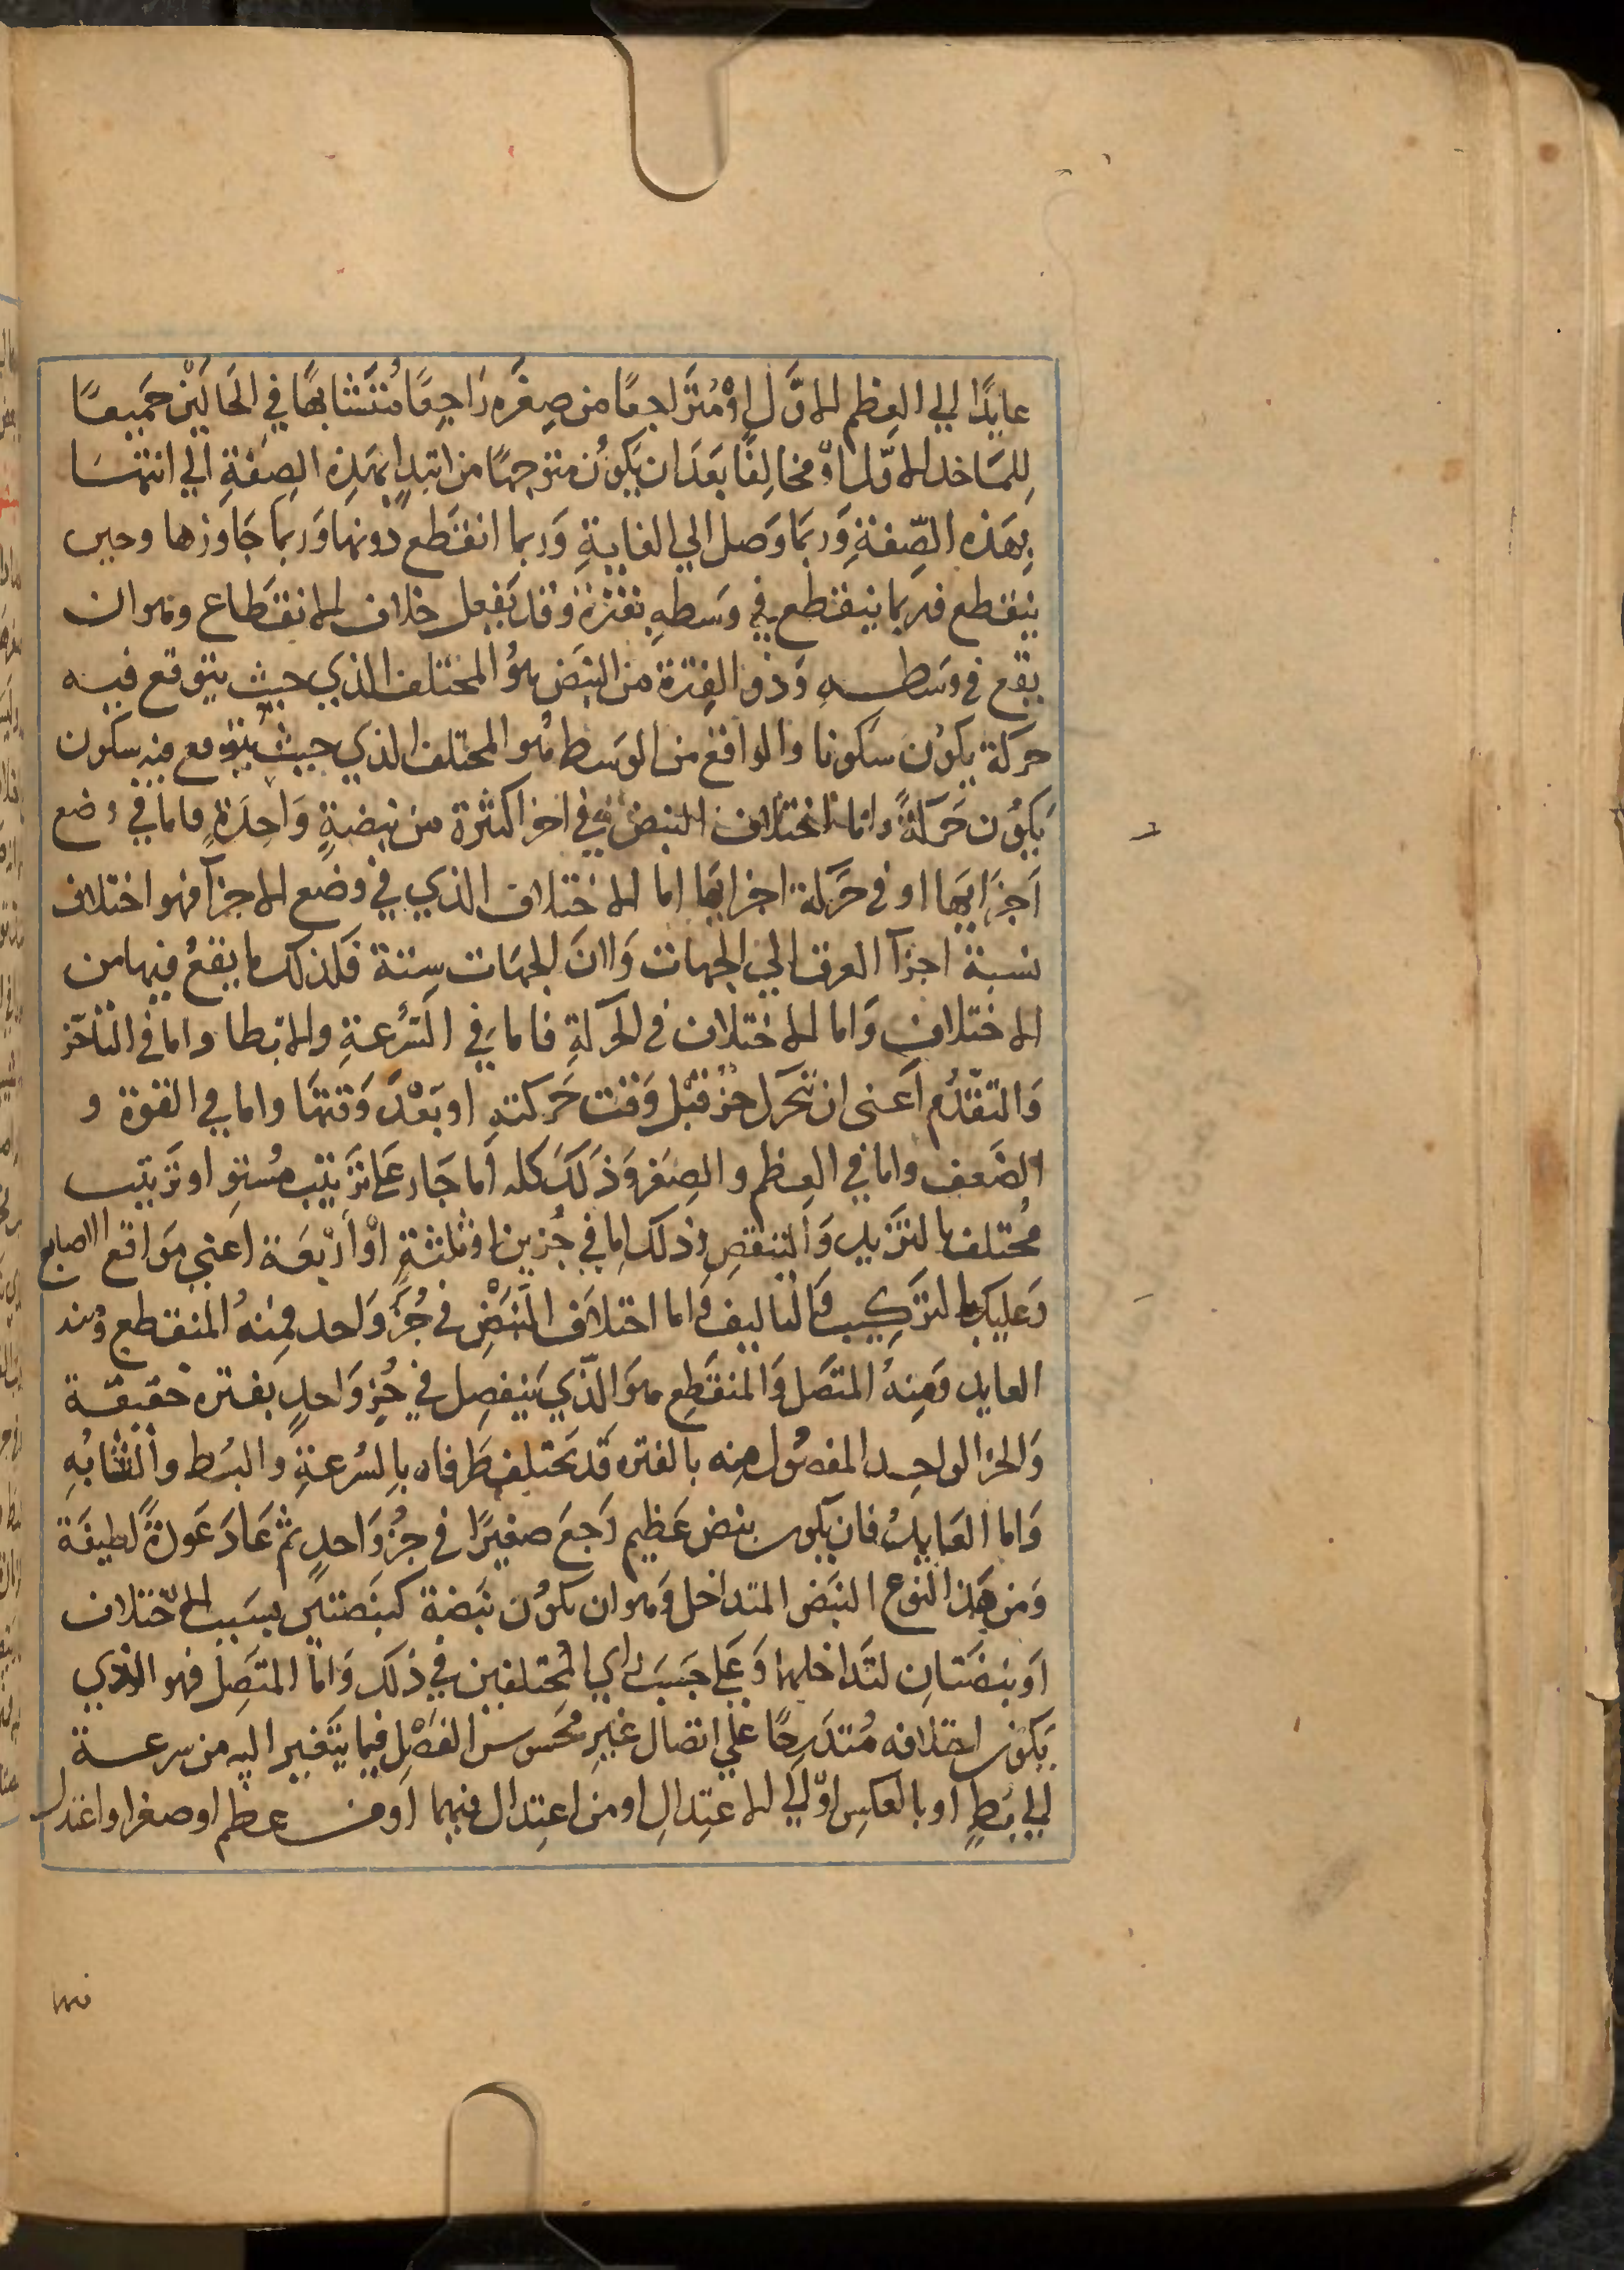 عايدًا الي العِظم الاوَّل اوْ مُتَراجعًا من صِغَره رَاجِعًا مُتَشَابهًا في الحَالَيْن جَميعًا
لِلمَاخد الاوّل اوْ مخالِفًا بَعَدَ ان يَكوُن متوجهًا من ابتداٍ بهَذِه الصِفةِ الي انتهَا
بِهَذه الصِّفةِ وَرُبمَا وَصل الي الغايةِ وَربما انقَطع دُونهَا وَربما جَاوَزها وحين
ينقطع فربما ينقطع في وسَطهِ بفترة وقد يَفعل خلاف الانقطاع وهو ان
يقع في وَسَطــهِ وَذو الفِترة من النبَض هوُ المختلف الذي حيث يتوقع فيه
حركة يكوُن سكونا والواقع من الوَسط هُو المختلف الذي حيث يُتوقع فيه سكون
يَكوُن حَرَكةً واما اختلاف النبض في اجزا كثرة من نبضةٍ وَاحِدَةٍ فاما في وَضع
اَجزَايهَا او في حَرَكة اجزايهَا اما الاختلاف الذي في وضع الاجزآ فهو اختلاف
نسبة اجزآ العرق الي الجهات وَلان الجهَات ستة فَلذلك ما يقعُ فيها من
الاختلافِ وَاما الاختلاف في الحركةِ فاما في السُّرعةِ والابطا واما في التاخر
وَالتقدُّم اَعني ان يتحرك جزٌ قبْل وَقت حَركتهِ او بَعْدَ وَقتهَا واما في القوة و
الضَعف واما في العِظم والصِغر وَذلَك كله اما جَار عَلى تَرتيْب مُستوٍ او تَرتيب
مُختلف بالتزيد وَالتنقصِ وَذلَك اِما في جُزيين اوْ ثلثةٍ اوْ ارْبعَة اعني مَوَاقع الاصابع
وَعليك بالتَركيب وَالتاليف وَاما اختلاَف النَّبَضِ في جُزءٍ وَاحد فمِنهُ المنقطع وَمنه
العايد وَمِنهُ المتصَل وَالمنقطع هوَ الذّي يَنفصِل في جُزٍ وَاحدٍ بفتره حَقيقة
وَالجزا الواحِــد المفصُول مِنه بالفتره قَد يَختلف طَرفاه بِالسُرعةِ والبُط والتشابُهِ
وَاما العَايدُ فان يكون نبض عَظيم رَجعَ صغيرًا في جزُ وَاحدٍ ثم عَادَ عَودَةً لَطيفَة
وَمن هَذا النوع النبَض المتداخل وَهو ان يكوُن نبَضة كنبَضتين بسَبب الاختلاف
اوَ نبضَتانِ لتَداخلهما وَعَلي حَسَب راي المُختلفين في ذلكَ وَاما المتصَِل فهو الذي
يَكون اختلافه مُتدرجًا علي اتصال غير مُحسوس الفصَل فيما يتَغير اليه من سرعــة
الي بَطٍ او بالعكسِ اوْ الي الاعتِدالِ او من اعتِدال فيهما اومن عظم او صغر او اعتدال
فيهما